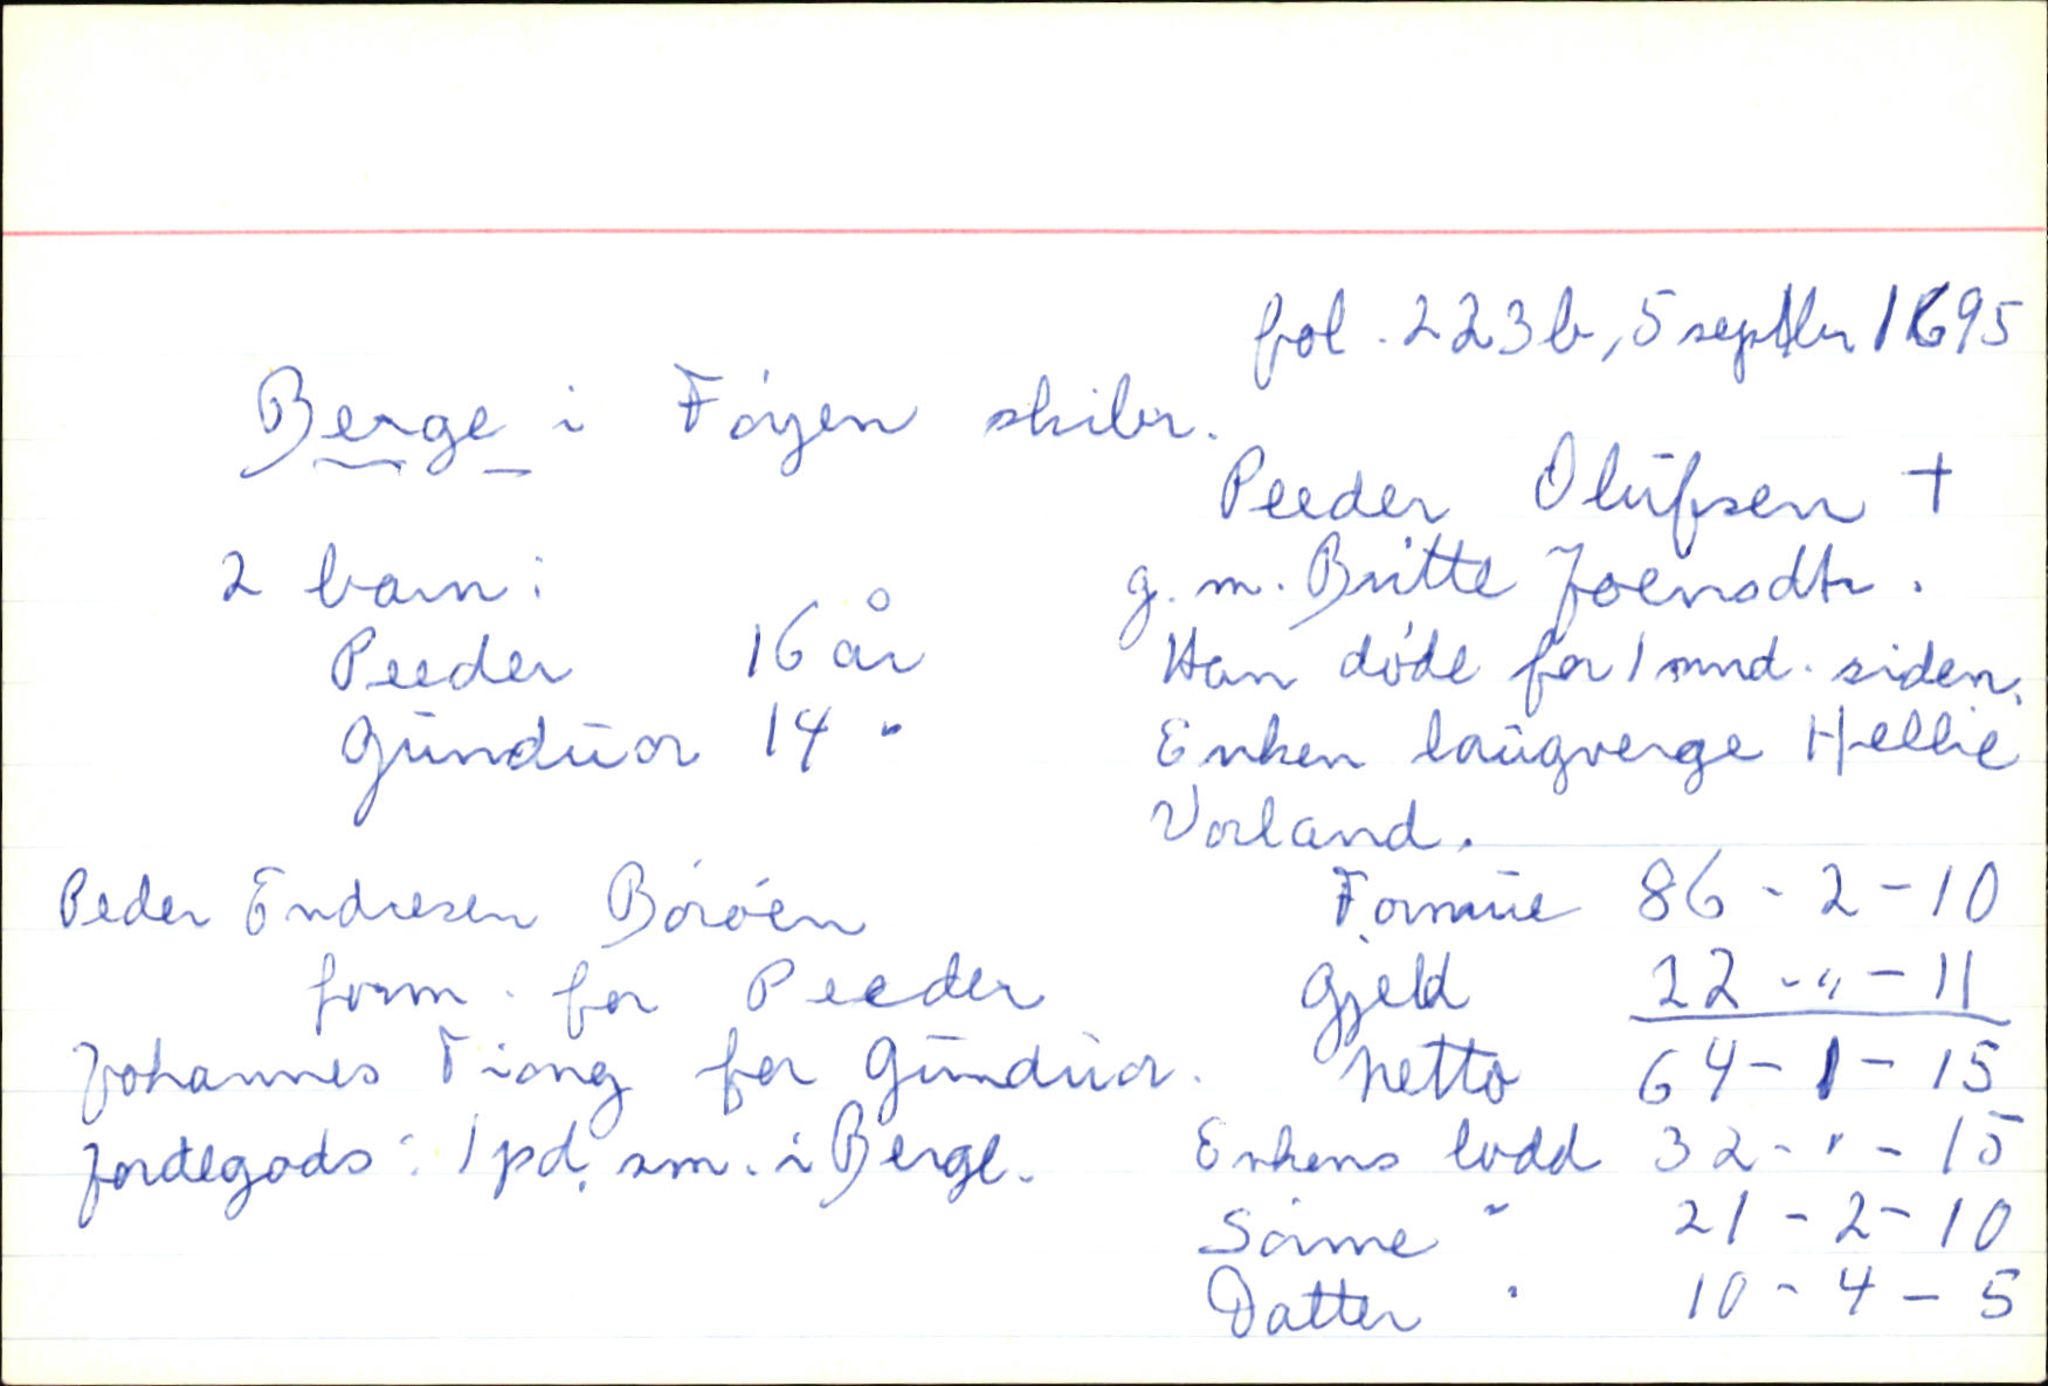 fol. 223b, 5 septbr 1695
Berge i Föyen skibr.
Peeder Olüfsen †
g. m. Britte Joensdtr.
Han döde for 1 mnd. siden.
Enken laugverge Hellie
Vorland.
2 barn:
Peeder 16 år
Gündüor 14 "
Peder Endresen Böröen
form. for Peeder
Johannes Tiong for Gündüor.
Jordegods: 1 pd. sm. i Berge.
Formüe 86 - 2 - 10
Gjeld 22 - " - 11
Netto 64 - 1 - 15
Enkens lodd 32 - " - 15
Sönne " 21 - 2 - 10
Datter " 10 - 4 - 5